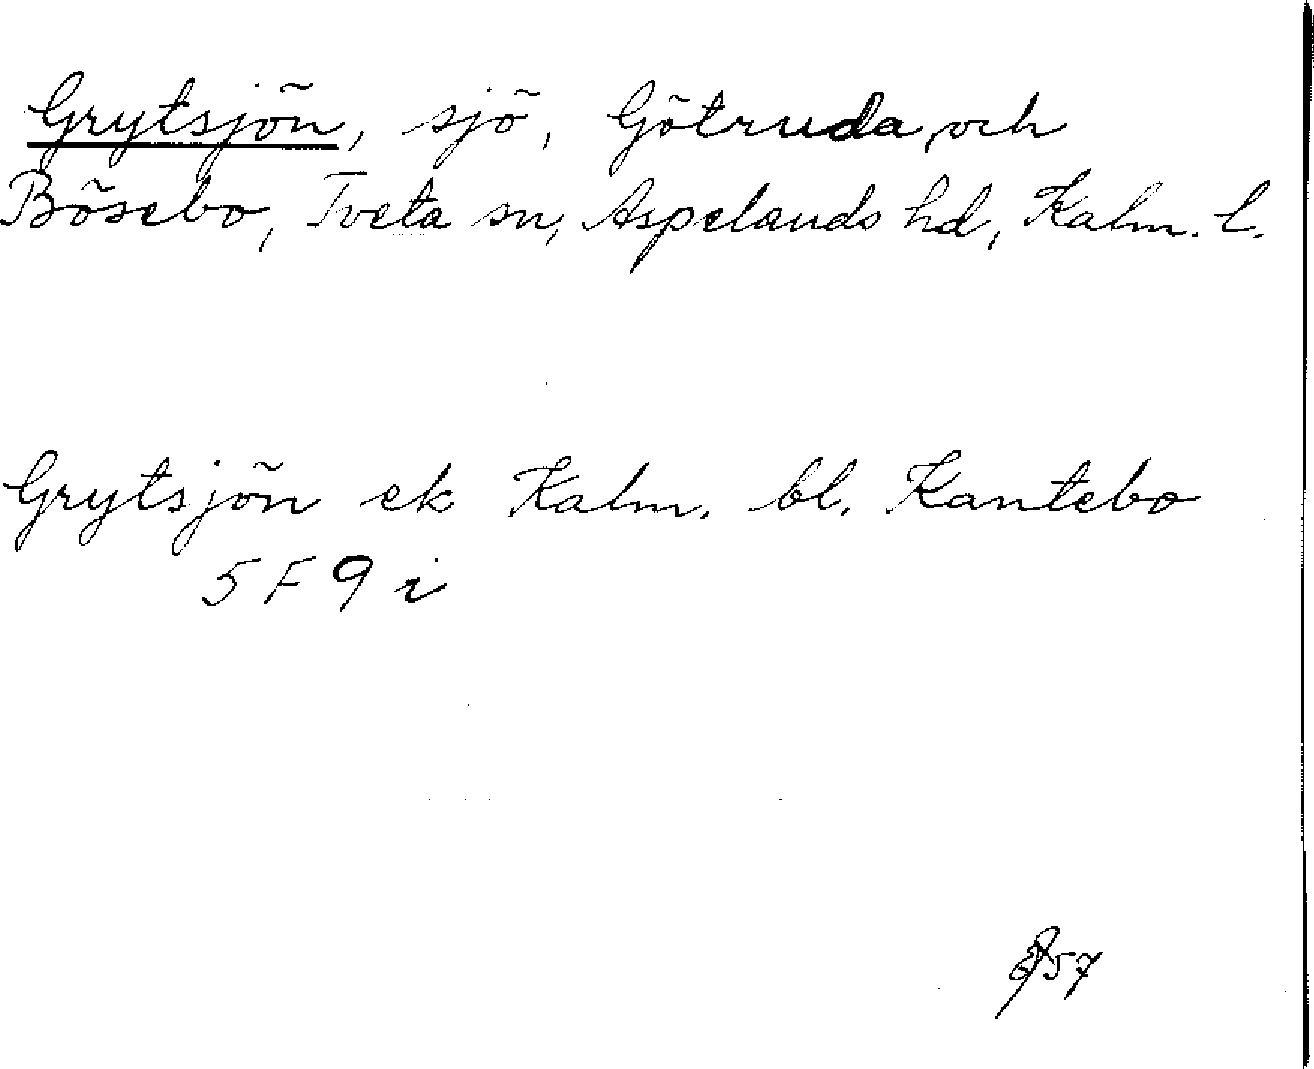 Grytsjön, sjö, Götruda och
Bösebo, Tveta sn, Aspelands hd, Kalm. l.
Grytsjön ek Kalm. bl. Kantebo
5 F 9 i
57